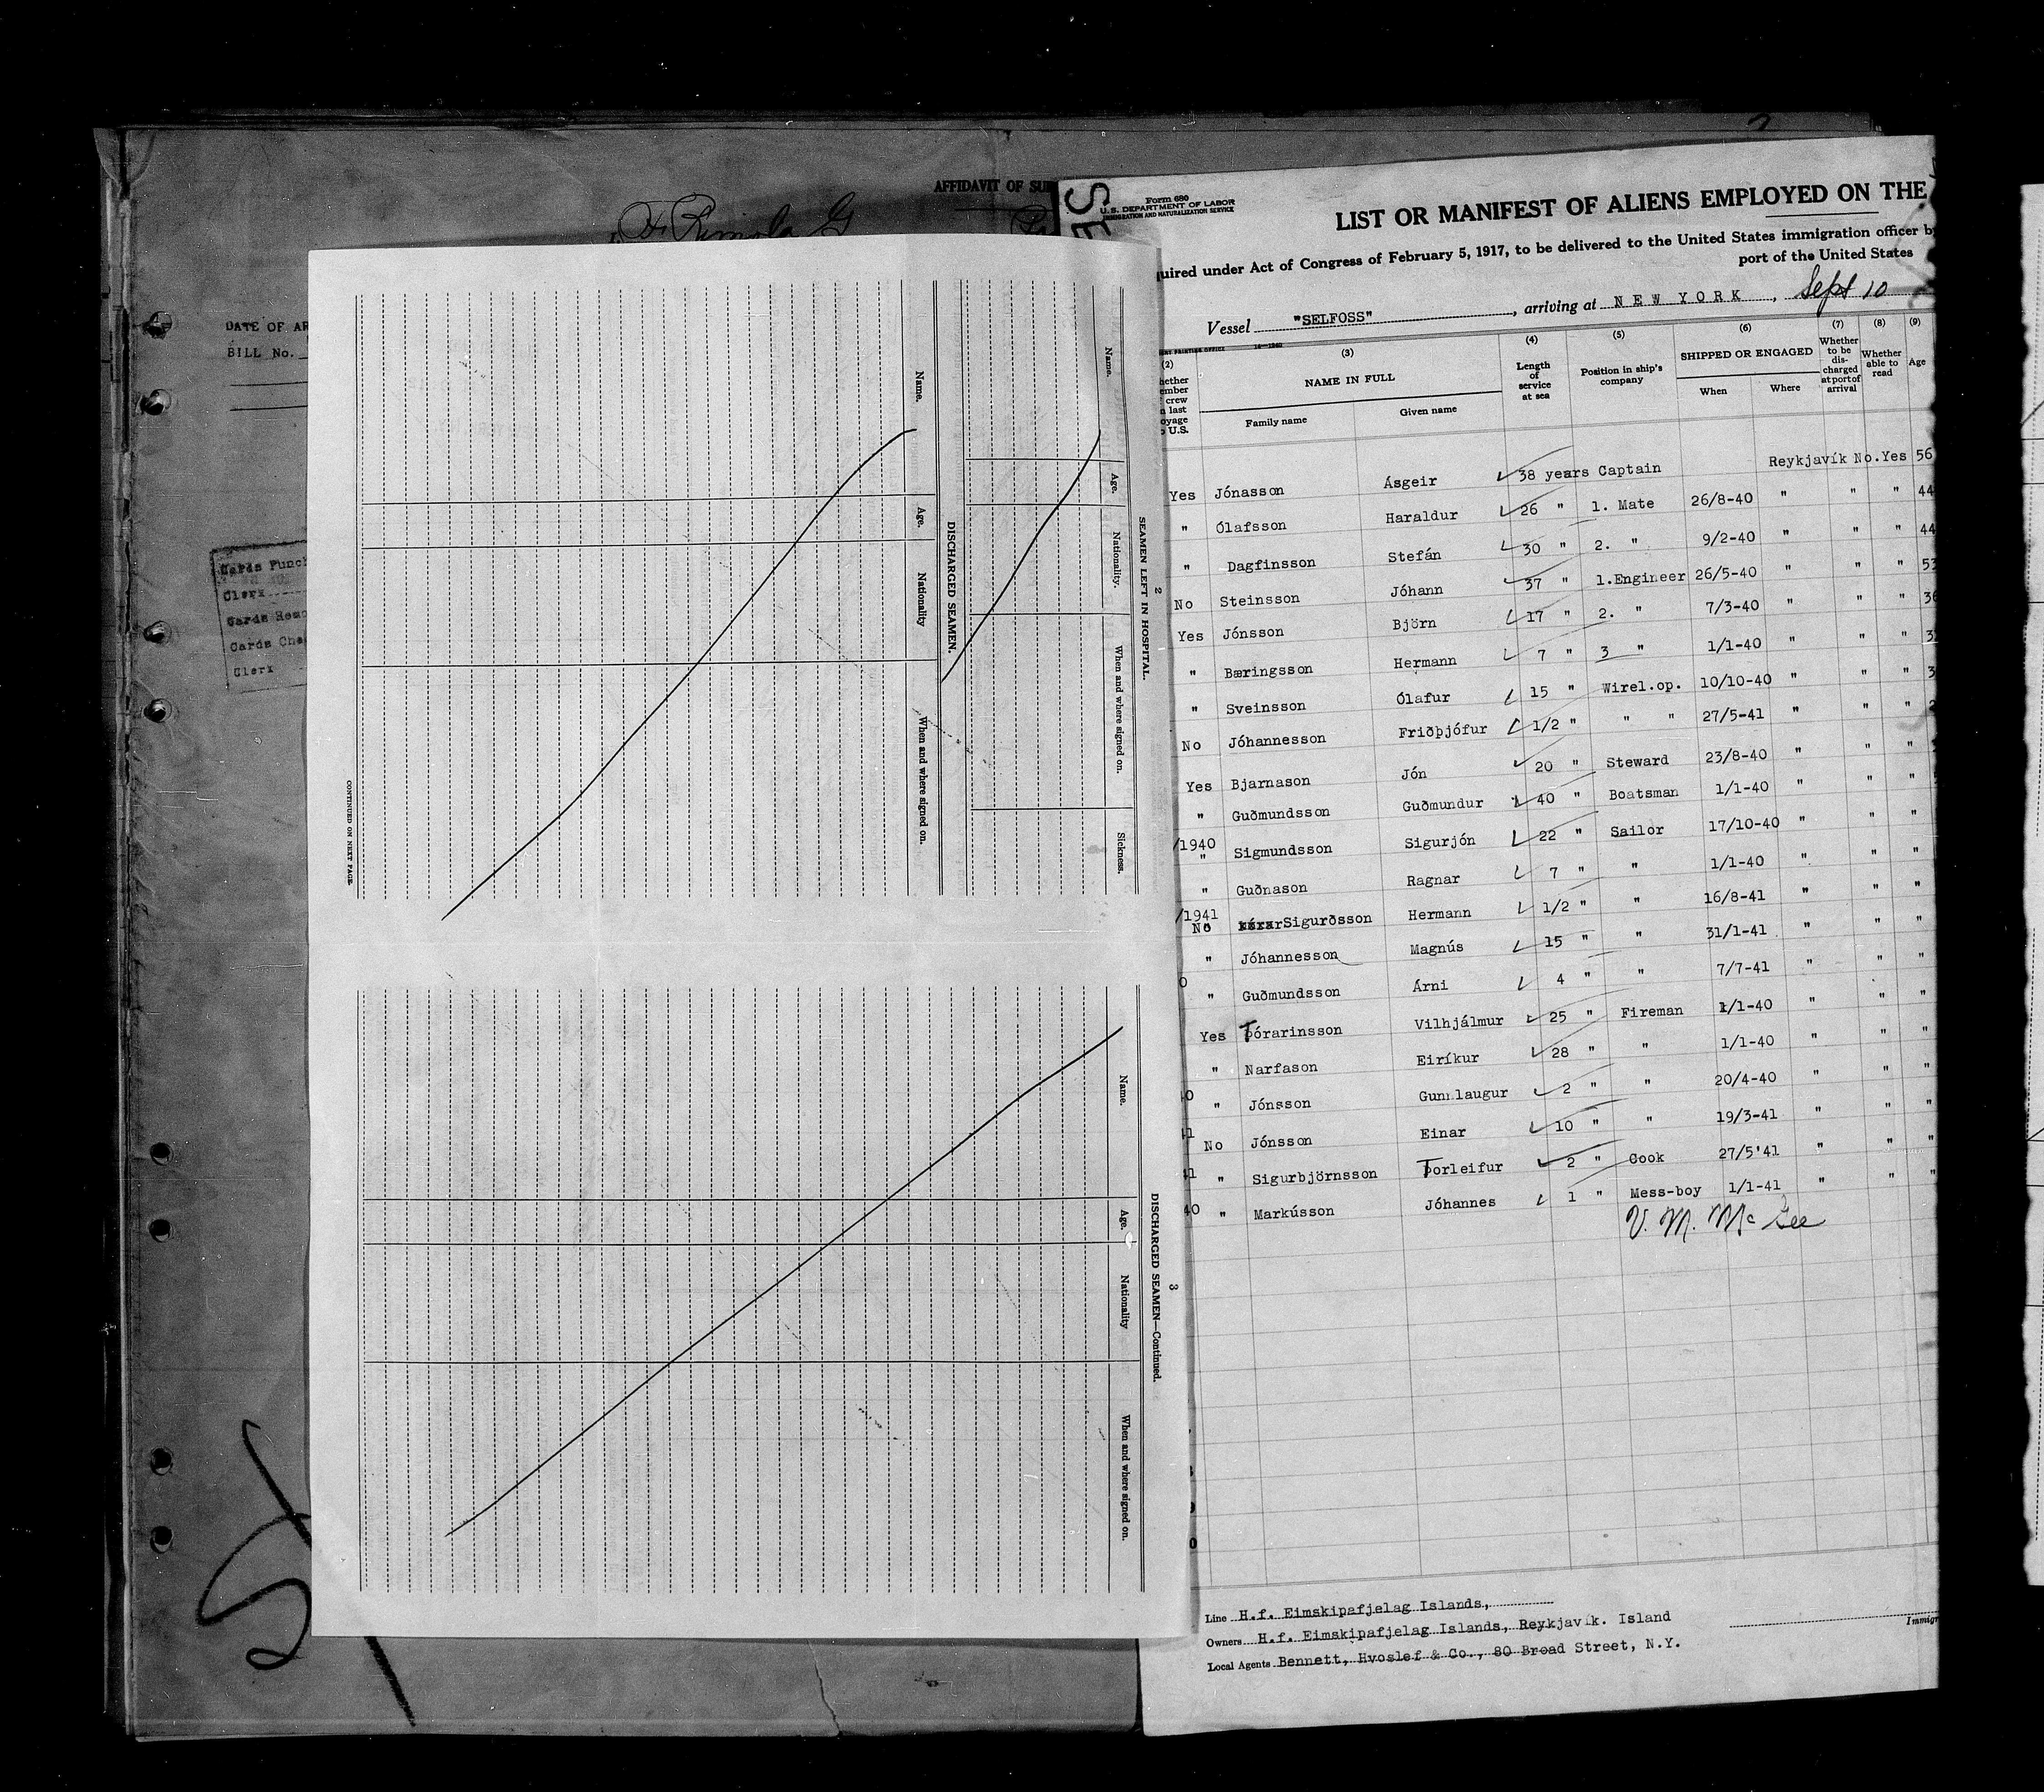 AFFIDAVIT OF
DATE OF AR
BILL No.
Cards Punch
Clerk
Cards
Cards
Clerk
2
SEAMEN LEFT IN HOSPITAL.
Name. Age. Nationality. When and where signed on. Sickness.
DISCHARGED SEAMEN.
Name. Age. Nationality When and where signed on.
CONTINUED ON NEXT PAGE.
3
DISCHARGED SEAMEN—Continued.
Name. Age. Nationality When and where signed on.
Form 680
U.S. DEPARTMENT OF LABOR
IMMIGRATION AND NATURALIZATION SERVICE
LIST OR MANIFEST OF ALIENS EMPLOYED ON THE
quired under Act of Congress of February 5, 1917, to be delivered to the United States immigration officer by
port of the United States
Vessel "SELFOSS", arriving at NEW YORK, Sept 10
(2) (3) (4) (5) (6) (7) (8) (9)
hether ember crew n last oyage o U.S. NAME IN FULL Length of service at sea Position in ship's company SHIPPED OR ENGAGED Whether to be dis- charged at port of arrival Whether able to read Age
Family name Given name When Where
Yes Jónasson Ásgeir 38 years Captain Reykjavík No. Yes 56
" Ólafsson Haraldur 26 " 1. Mate 26/8-40 " " " 44
" Dagfinsson Stefán 30 " 2. " 9/2-40 " " " 44
No Steinsson Jóhann 37 " 1.Engineer 26/5-40 " " " 53
Yes Jónsson Björn 17 " 2. " 7/3-40 " " " 36
" Bæringsson Hermann 7 " 3 " 1/1-40 " " " 3
" Sveinsson Ólafur 15 " Wirel.op. 10/10-40 " " " 3
No Jóhannesson Friðþjófur 1/2 " " " 27/5-41 " " " 2
Yes Bjarnason Jón 20 " Steward 23/8-40 " " "
" Guðmundsson Guðmundur 40 " Boatsman 1/1-40 " " "
/1940 " Sigmundsson Sigurjón 22 " Sailor 17/10-40 " " "
" Guðnason Ragnar 7 " " 1/1-40 " " "
/1941 No Sigurðsson Hermann 1/2 " " 16/8-41 " " "
" Jóhannesson Magnús 15 " " 31/1-41 " " "
0 " Guðmundsson Árni 4 " " 7/7-41 " " "
Yes Þórarinsson Vilhjálmur 25 " Fireman 1/1-40 " " "
" Narfason Eiríkur 28 " " 1/1-40 " " "
40 " Jónsson Gunnlaugur 2 " " 20/4-40 " " "
41 No Jónsson Einar 10 " " 19/3-41 " " "
41 " Sigurbjörnsson Þorleifur 2 " Cook 27/5'41 " " "
40 " Markússon Jóhannes 1 " Mess-boy 1/1-41 " " "
V. M. McGee
Line H.f. Eimskipafjelag Islands,
Owners H.f. Eimskipafjelag Islands, Reykjavík. Island
Immigr
Local Agents Bennett, Hvoslef & Co., 80 Broad Street, N.Y.